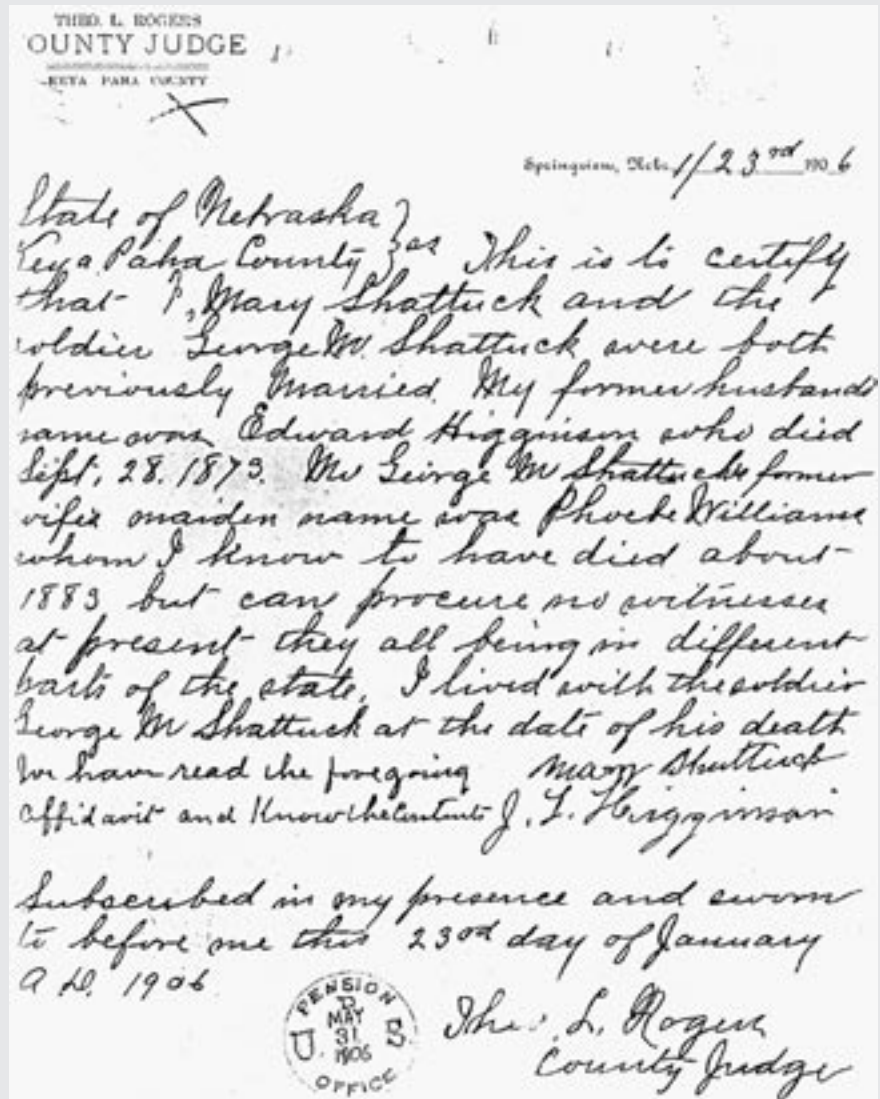 THEO. L. ROGERS
OUNTY JUDGE
KEYA PAHA COUNTY
Springview, Nebr. 1/23rd 1906
State of Nebraska }
Keya Paha County } ss This is to certify
that I, Mary Shattuck and the
soldier George M. Shattuck were both
previously Married. My former husbands
name was Edward Higginson who died
Sept. 28. 1873. Mr George M Shattucks former
wifes maiden name was Phoebe Williams
whom I know to have died about
1883 but can procure no witnesses
at present they all being in different
parts of the state. I lived with the soldier
George M Shattuck at the date of his death
We have read the foregoing Mary Shattuck
affidavit and Know the Contents J. L. Higginson
Subscribed in my presence and sworn
to before me this 23rd day of January
A D. 1906
U. S. PENSION OFFICE
MAY
31
1906
Theo. L. Rogers
County Judge